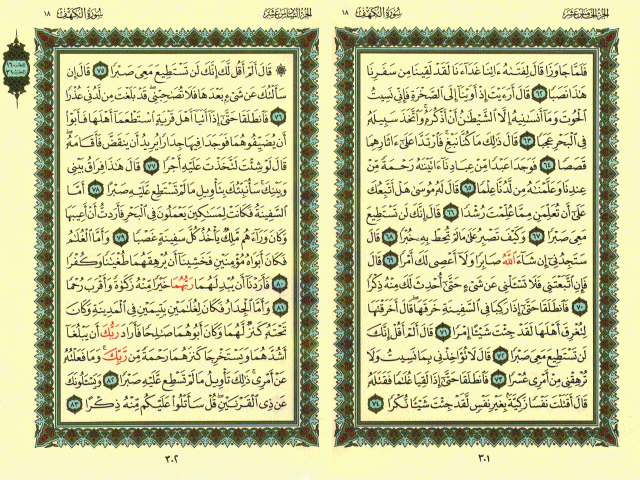 الجزء الخامس عشر
سورة الكهف
١٨
فَلَمَّا جَاوَزَا قَالَ لِفَتَىٰهُ ءَاتِنَا غَدَآءَنَا لَقَدْ لَقِينَا مِن سَفَرِنَا
هَٰذَا نَصَبًا ٦٢ قَالَ أَرَءَيْتَ إِذْ أَوَيْنَآ إِلَى ٱلصَّخْرَةِ فَإِنِّى نَسِيتُ
ٱلْحُوتَ وَمَآ أَنسَىٰنِيهُ إِلَّا ٱلشَّيْطَٰنُ أَنْ أَذْكُرَهُۥ وَٱتَّخَذَ سَبِيلَهُۥ
فِى ٱلْبَحْرِ عَجَبًا ٦٣ قَالَ ذَٰلِكَ مَا كُنَّا نَبْغِ فَٱرْتَدَّا عَلَىٰٓ ءَاثَارِهِمَا
قَصَصًا ٦٤ فَوَجَدَا عَبْدًا مِّنْ عِبَادِنَآ ءَاتَيْنَٰهُ رَحْمَةً مِّنْ
عِندِنَا وَعَلَّمْنَٰهُ مِن لَّدُنَّا عِلْمًا ٦٥ قَالَ لَهُۥ مُوسَىٰ هَلْ أَتَّبِعُكَ
عَلَىٰٓ أَن تُعَلِّمَنِ مِمَّا عُلِّمْتَ رُشْدًا ٦٦ قَالَ إِنَّكَ لَن تَسْتَطِيعَ
مَعِىَ صَبْرًا ٦٧ وَكَيْفَ تَصْبِرُ عَلَىٰ مَا لَمْ تُحِطْ بِهِۦ خُبْرًا ٦٨ قَالَ
سَتَجِدُنِىٓ إِن شَآءَ ٱللَّهُ صَابِرًا وَلَآ أَعْصِى لَكَ أَمْرًا ٦٩ قَالَ
فَإِنِ ٱتَّبَعْتَنِى فَلَا تَسْـَٔلْنِى عَن شَىْءٍ حَتَّىٰٓ أُحْدِثَ لَكَ مِنْهُ ذِكْرًا
٧٠ فَٱنطَلَقَا حَتَّىٰٓ إِذَا رَكِبَا فِى ٱلسَّفِينَةِ خَرَقَهَا قَالَ أَخَرَقْتَهَا
لِتُغْرِقَ أَهْلَهَا لَقَدْ جِئْتَ شَيْـًٔا إِمْرًا ٧١ قَالَ أَلَمْ أَقُلْ إِنَّكَ
لَن تَسْتَطِيعَ مَعِىَ صَبْرًا ٧٢ قَالَ لَا تُؤَاخِذْنِى بِمَا نَسِيتُ وَلَا
تُرْهِقْنِى مِنْ أَمْرِى عُسْرًا ٧٣ فَٱنطَلَقَا حَتَّىٰٓ إِذَا لَقِيَا غُلَٰمًا فَقَتَلَهُۥ
قَالَ أَقَتَلْتَ نَفْسًا زَكِيَّةًۢ بِغَيْرِ نَفْسٍ لَّقَدْ جِئْتَ شَيْـًٔا نُّكْرًا ٧٤
٣٠١
سورة الكهف
١٨
قَالَ أَلَمْ أَقُل لَّكَ إِنَّكَ لَن تَسْتَطِيعَ مَعِىَ صَبْرًا ٧٥ قَالَ إِن
سَأَلْتُكَ عَن شَىْءٍۭ بَعْدَهَا فَلَا تُصَٰحِبْنِى قَدْ بَلَغْتَ مِن لَّدُنِّى عُذْرًا
٧٦ فَٱنطَلَقَا حَتَّىٰٓ إِذَآ أَتَيَآ أَهْلَ قَرْيَةٍ ٱسْتَطْعَمَآ أَهْلَهَا فَأَبَوْا۟
أَن يُضَيِّفُوهُمَا فَوَجَدَا فِيهَا جِدَارًا يُرِيدُ أَن يَنقَضَّ فَأَقَامَهُۥ
قَالَ لَوْ شِئْتَ لَتَّخَذْتَ عَلَيْهِ أَجْرًا ٧٧ قَالَ هَٰذَا فِرَاقُ بَيْنِى
وَبَيْنِكَ سَأُنَبِّئُكَ بِتَأْوِيلِ مَا لَمْ تَسْتَطِع عَّلَيْهِ صَبْرًا ٧٨ أَمَّا
ٱلسَّفِينَةُ فَكَانَتْ لِمَسَٰكِينَ يَعْمَلُونَ فِى ٱلْبَحْرِ فَأَرَدتُّ أَنْ أَعِيبَهَا
وَكَانَ وَرَآءَهُم مَّلِكٌ يَأْخُذُ كُلَّ سَفِينَةٍ غَصْبًا ٧٩ وَأَمَّا ٱلْغُلَٰمُ
فَكَانَ أَبَوَاهُ مُؤْمِنَيْنِ فَخَشِينَآ أَن يُرْهِقَهُمَا طُغْيَٰنًا وَكُفْرًا
٨٠ فَأَرَدْنَآ أَن يُبْدِلَهُمَا رَبُّهُمَا خَيْرًا مِّنْهُ زَكَوٰةً وَأَقْرَبَ رُحْمًا
٨١ وَأَمَّا ٱلْجِدَارُ فَكَانَ لِغُلَٰمَيْنِ يَتِيمَيْنِ فِى ٱلْمَدِينَةِ وَكَانَ
تَحْتَهُۥ كَنزٌ لَّهُمَا وَكَانَ أَبُوهُمَا صَٰلِحًا فَأَرَادَ رَبُّكَ أَن يَبْلُغَآ
أَشُدَّهُمَا وَيَسْتَخْرِجَا كَنزَهُمَا رَحْمَةً مِّن رَّبِّكَ وَمَا فَعَلْتُهُۥ
عَنْ أَمْرِى ذَٰلِكَ تَأْوِيلُ مَا لَمْ تَسْطِع عَّلَيْهِ صَبْرًا ٨٢ وَيَسْـَٔلُونَكَ
عَن ذِى ٱلْقَرْنَيْنِ قُلْ سَأَتْلُوا۟ عَلَيْكُم مِّنْهُ ذِكْرًا ٨٣
٣٠٢